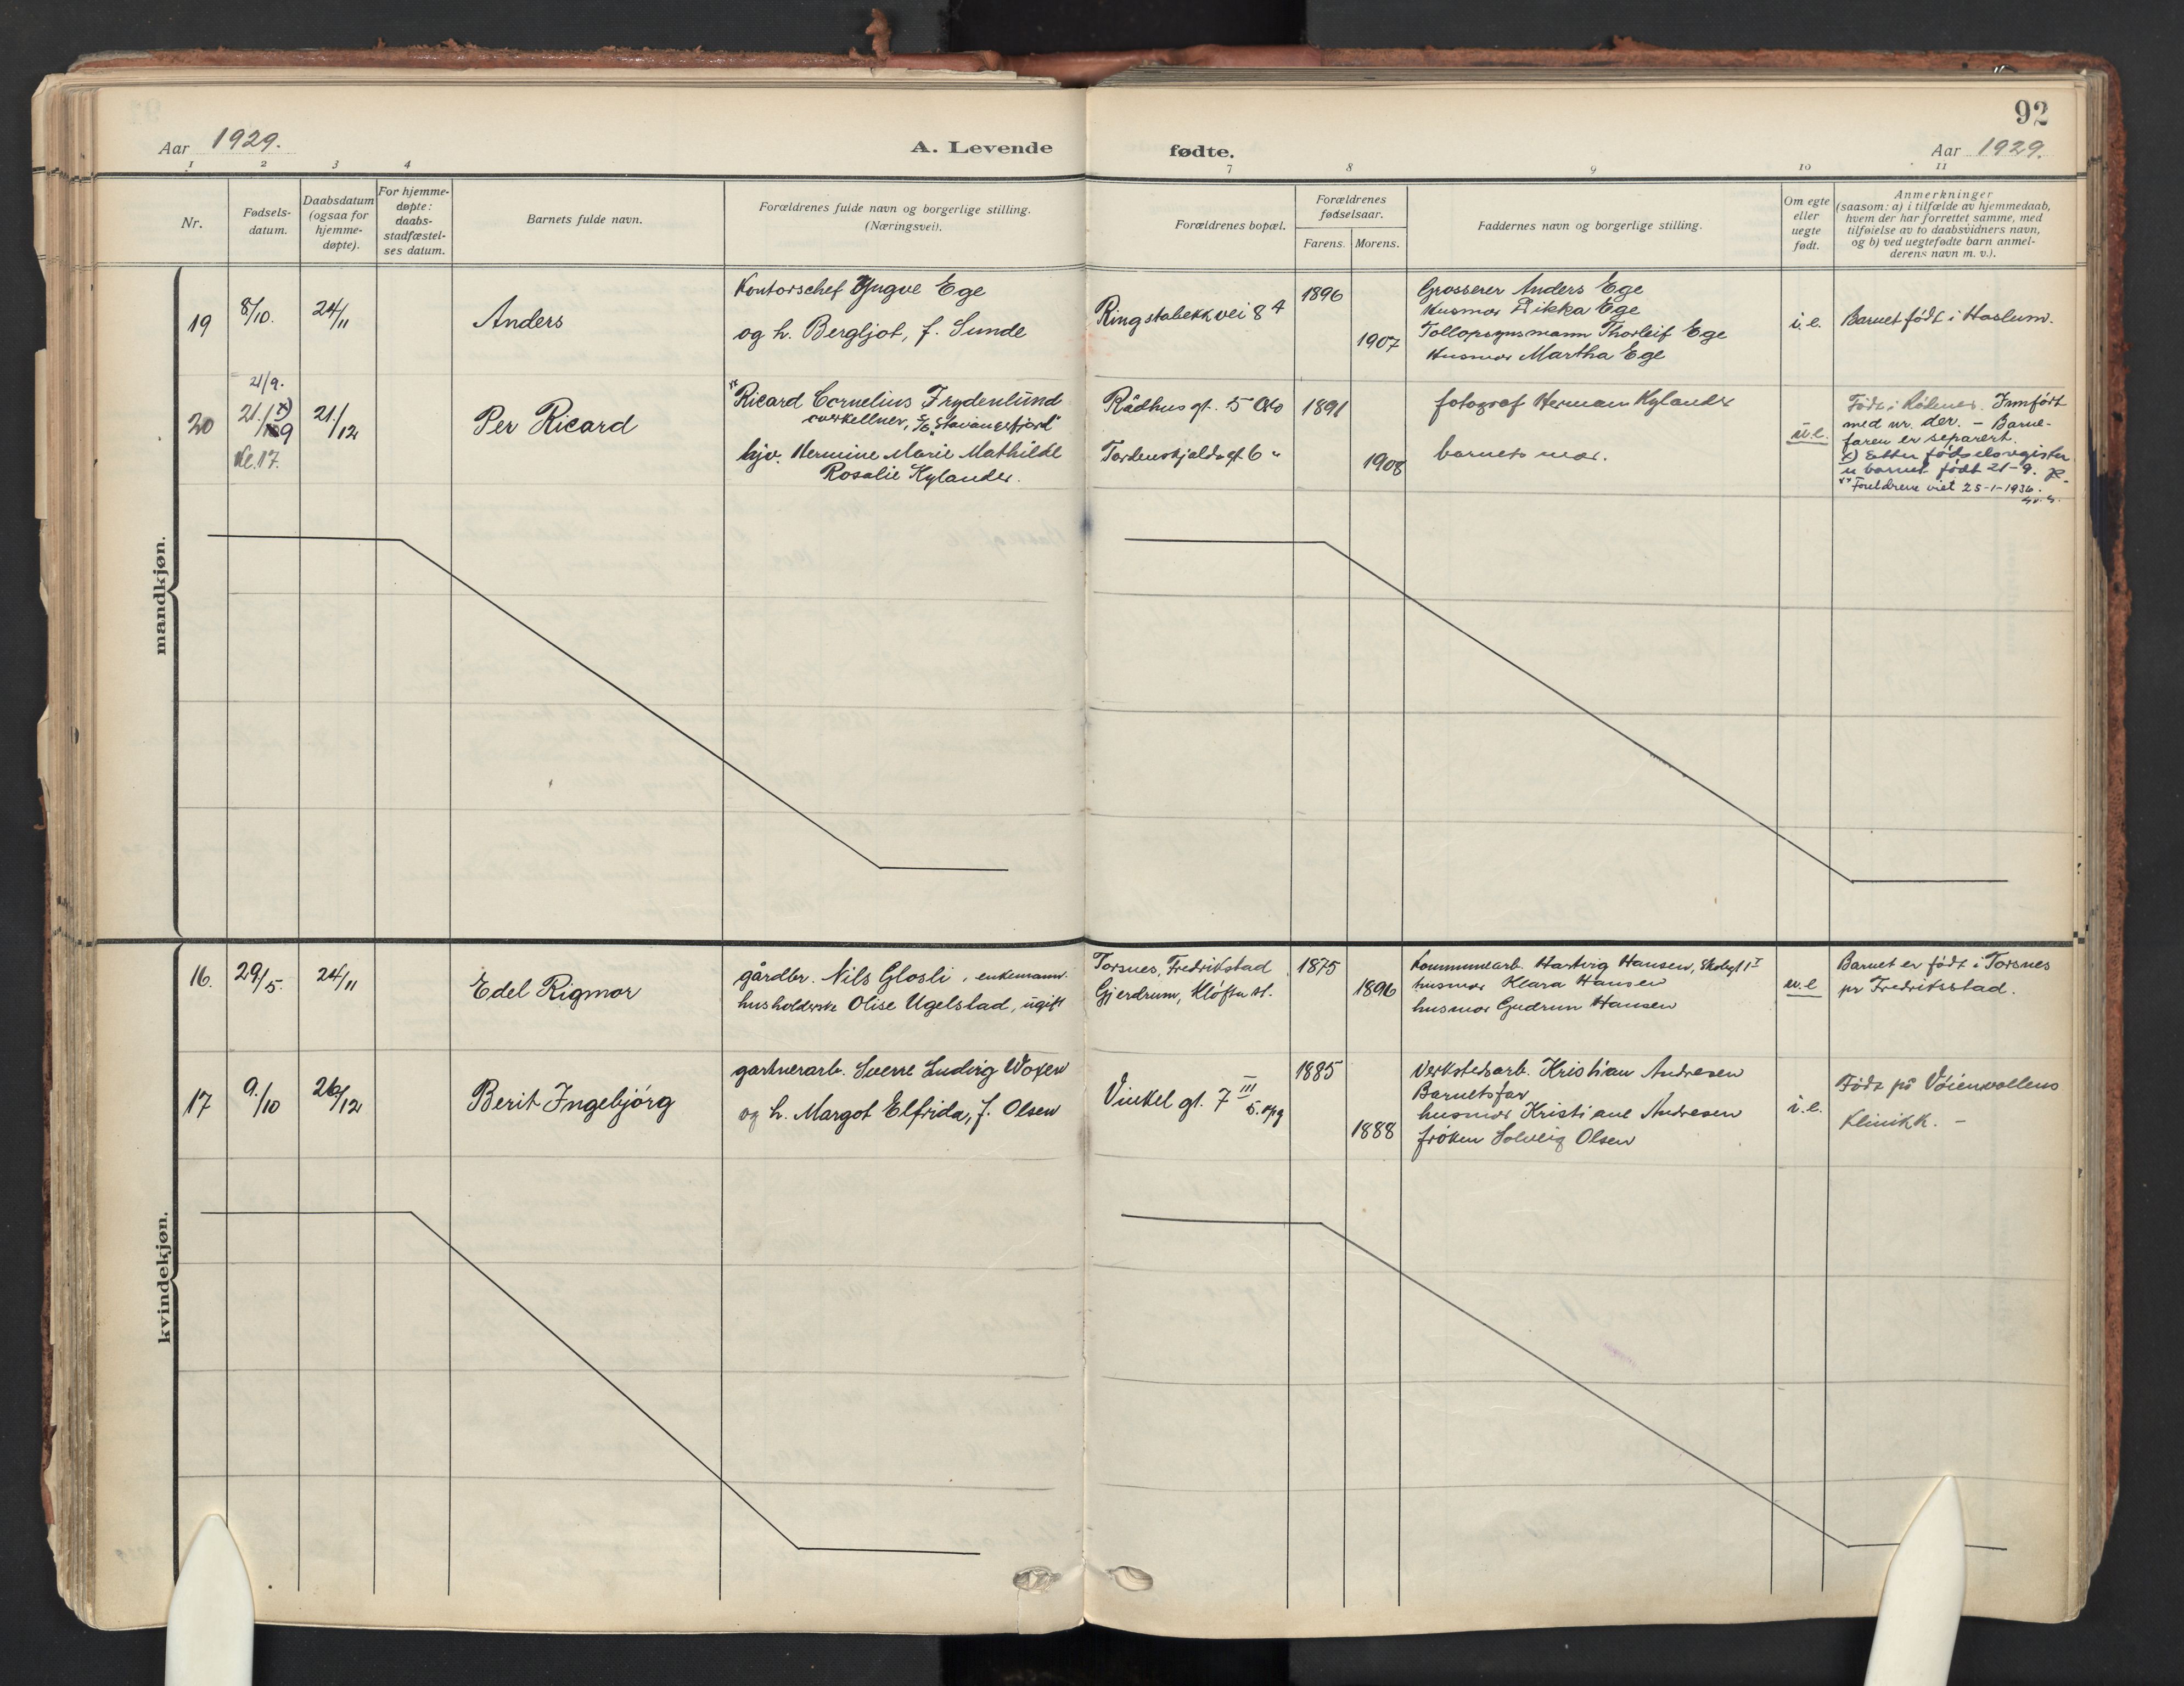 92
Aar 1929.
A. Levende
fødte.
Aar 1929.
1 2 3 4
7 8 9 10 11
Nr.
Fødsels-
datum.
Daabsdatum
(ogsaa for
hjemme-
døpte).
For hjemme-
døpte:
daabs-
stadfæstel-
ses datum.
Barnets fulde navn.
Forældrenes fulde navn og borgerlige stilling.
(Næringsvei).
Forældrenes bopæl.
Forældrenes
fødselsaar.
Farens. Morens.
Faddernes navn og borgerlige stilling.
Om egte
eller
uegte
født.
Anmerkninger
(saasom: a) i tilfælde av hjemmedaab,
hvem der har forrettet samme, med
tilføielse av to daabsvidners navn,
og b) ved uegtefødte barn anmel-
derens navn m. v.).
mandkjøn.
19
8/10.
24/11
Anders
Kontorschef Yngve Ege
og h. Bergljot, f. Sunde
Ringstabekkvei 84
1896
1907
Grosserer Anders Ege
Husmor Rikka Ege
Tollopsynsmann Thorleif Ege
Husmor Martha Ege
i.e.
Barnet født i Haslum.
20
21/9.
21./9 x)
Kl. 17.
21./12
Per Ricard
Ricard Cornelius Frydenlund
overkellner, S/S "Stavangerfjord"
hjv. Hermine Marie Mathilde
Rosalie Kylander.
Rådhusgt. 5 Oslo
Tordenskjoldsgt. 6 "
1891
1908
fotograf Herman Kylander
barnets mor.
u.e.
Født i Innført
med nr. der. - Barne-
faren er separert.
x) Etter fødselsregister
er barnet født 21-9.
Foreldrene viet 25-1-1936.
kvindekjøn.
16.
29/5.
24/11
Edel Rigmor
gårdbr. Nils Glosli, enkemann.
husholderske Olise Ugelstad, ugift
Torsnes, Fredrikstad
Gjerdrum, Kløfta st.
1875
1896
Kommunearb. Hartvig Hansen, Skolegt 1
husmor Klara Hansen
husmor Gudrun Hansen
u.e
Barnet er født i Torsnes
pr Fredrikstad.
17
9./10
26/12
Berit Ingebjørg
gartnerarb. Sverre Ludvig Woxen
og h. Margot Elfrida, f. Olsen
Vinkel gt. 7 III
5. opg
1885
1888
Verkstedsarb. Kristian Andresen
Barnetsfar
husmor Kristiane Andresen
frøken Solveig Olsen
i.e.
Født på Vøienvollens
Klinikk. -